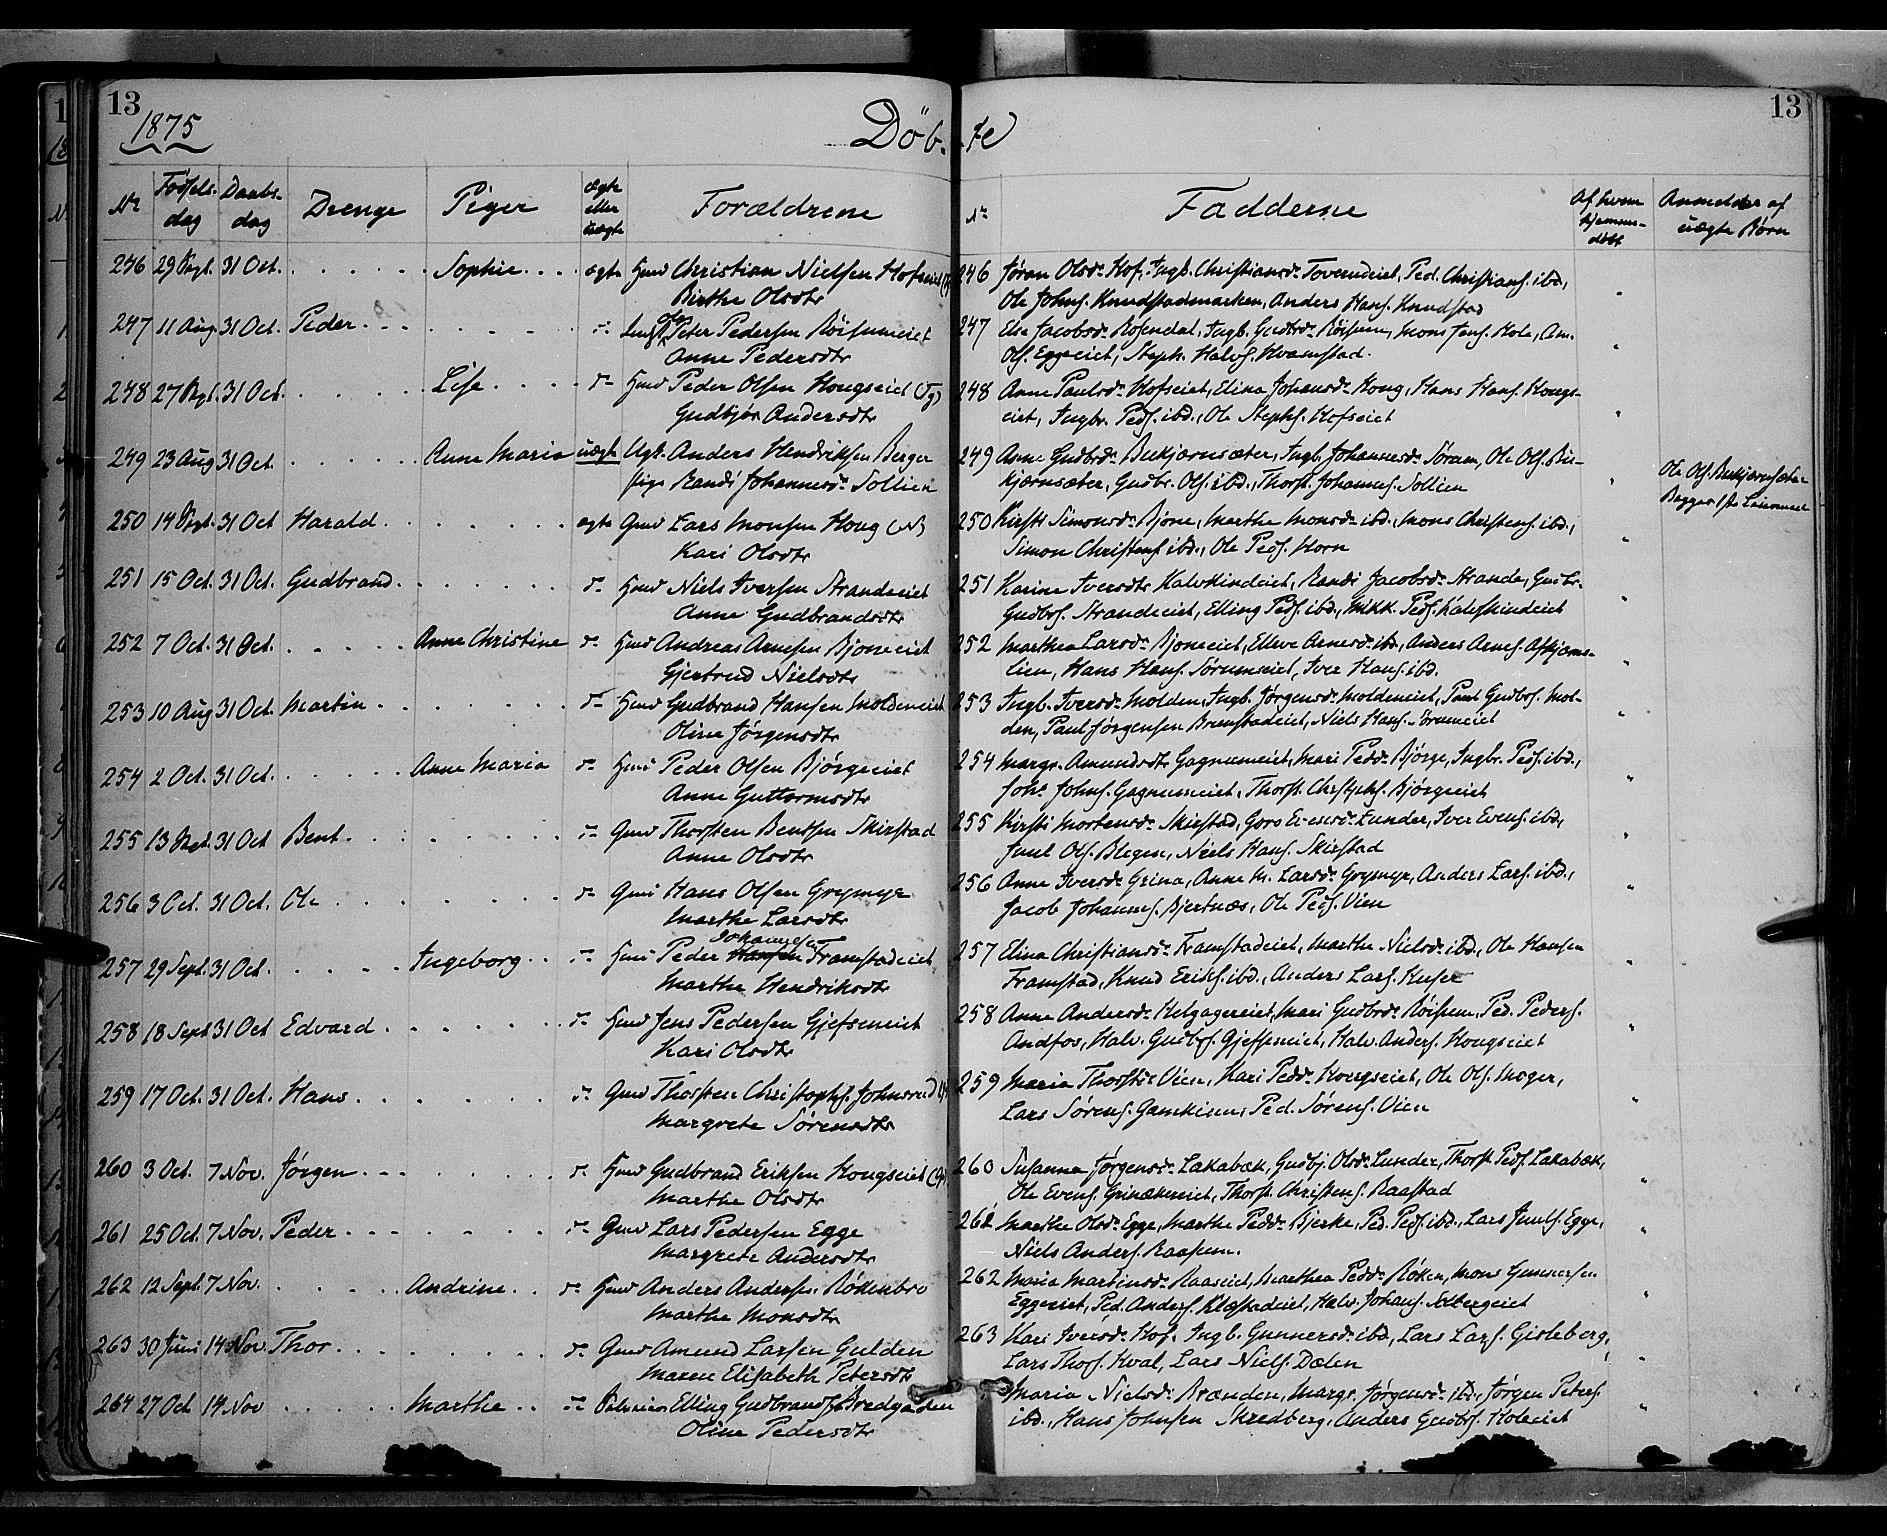 13
13
1875
Döb-te
Nr Fødsels-dag Daabs-dag Drenge Piger ægte eller uægte Forældrene
Nr Fadderne Af hvem hjemme-døbt Anmelder af uægte Børn
246 29 Sept. 31 Oct. Sophie ægte Huusm Christian Nielsen Hofseiet
Birthe Olsdtr
247 11 Aug. 31 Oct. Peder Peter Pedersen Röisumeiet
Anne Pedersdtr
248 27 Sept. 31 Oct. Lise Peder Olsen Hougseiet
Gudbjör Andersdtr
249 23 Aug 31 Oct. Anne Maria uægte Ugt. Anders Hendriksen Berger
Pige Randi Johannesd. Sollien
250 14 Sept. 31 Oct Harald ægte Lars Monsen Houg
Kari Olsdtr
251 15 Oct. 31 Oct. Gudbrand Niels Iversen Strandeeiet
Anne Gudbrandsdtr
252 7 Oct. 31 Oct. Anne Christine Andreas Arnesen Bjoneeiet
Gjertrud Nielsdtr
253 10 Aug 31 Oct. Martin Gudbrand Hansen Moldeneiet
Oline Jørgensdtr
254 2 Oct. 31 Oct. Anne Maria Peder Olsen Bjørgeeiet
Anne Guttormsdtr
255 13 31 Oct Bent Thorsten Bentsen Skirstad
Anne Olsdtr
256 3 Oct. 31 Oct. Ole Hans Olsen Grymyr
Marthe Larsdtr
257 29 Sept. 31 Oct. Ingeborg Peder Johannesen Framstadeiet
Marthe Hendriksdtr
258 18 Sept 31 Oct Edvard Jens Pedersen Gjefseneiet
Kari Olsdtr
259 17 Oct. 31 Oct. Hans Thorsten Christophs. Johnsrud
Margrete Sørensdtr
260 3 Oct. 7 Nov. Jørgen Gudbrand Eriksen Hougseiet
Marthe Olsdtr
261 25 Oct. 7 Nov. Peder Lars Pedersen Egge
Margrete Andersdtr
262 12 Sept. 7 Nov. Andrine Anders Anders. Røkenbro
Marthe Monsdtr
263 30 Juni 14 Nov. Thor Amund Larsen Gulden
Maren Elisabeth Petersdtr
264 27 Oct 14 Nov Marthe Elling Gudbrands. Bredgaden
Oline Pedersdtr
246 Jøran Olsdr. Hof, Ingb. Christiansdr. Toverudeiet, Ped. Christians. ibd.,
Ole Johns. Knudstadmarken, Anders Hans. Knudstad
247 Else Jacobsdr. Rosendal, Ingb. Gudbrdr. Röisum, Mons Jens. Hole, Am.
Ols. Eggeeiet, Steph. Halvs. Kvamstad.
248 Anne Paulsdr. Hofseiet, Eline Johansdr. Houg, Hans Hans. Hougs-
eiet, Ingbr. Peds. ibd., Ole Stephs. Hofseiet
249 Anne Gudbrdr. Bukjærnsæter, Ingb. Johannesdr. Søram, Ole Ols. Buk-
kjærnsæter, Gudbr. Ols. ibd., Thorst. Johannes. Sollien
Ole Ols. Bukjærnsæter
250 Kirsti Simonsdr. Bjone, Marthe Monsdr ibd., Mons Christens. ibd.,
Simon Christens. ibd., Ole Peds. Horn
251 Karine Iversdtr Kalvskindeiet, Randi Jacobsdr. Strande, Gudbr.
Gudbrs. Strandeeiet, Elling Peds. ibd., Mikk. Peds. Kalvskindeiet
252 Marthea Larsdr. Bjoneeiet, Elleve Arnesdr. ibd., Anders Arnes. Askjems-
lien, Hans Hans. Sørumseiet, Iver Hans. ibd.
253 Ingb. Iversdr. Molden, Ingb. Jørgensdr. Moldeneiet, Paul Gudbrs. Mol-
den, Paul Jørgensen Brunstadeiet, Niels Hans. Sørumeiet
254 Margr. Amundsdtr Gagnumeiet, Mari Pedsdr. Bjørge, Ingbr. Peds. ibd.,
Johs. Johns. Gagnumeiet, Thorst. Christophs. Bjørgeeiet
255 Kirsti Mortensdr. Skirstad, Goro Evensdr. Lunder, Iver Evens. ibd.,
Juul Ols. Blegen, Niels Hans. Skirstad
256 Anne Iversdr. Grina, Anne M. Larsdr. Grymyr, Anders Lars. ibd.,
Jacob Johannes. Bjertnæs, Ole Peds. Vien
257 Eline Christiansdr. Framstadeiet, Marthe Nielsdr. ibd., Ole Hansen
Framstad, Knud Eriks. ibd., Anders Lars.
258 Anne Andersdr. Helgagereiet, Mari Gudbrdr. Röisum, Ped. Peders.
Andfos, Halv. Gudbrs. Gjefseneiet, Halv. Anders. Hougseiet
259 Maria Thorstdr. Vien, Kari Pedsdr. Hougseiet, Ole Ols. Moger,
Lars Sørens. Gamkinn, Ped. Sørens. Vien
260 Susanna Jørgensdr. Lakabæk, Gudbj. Olsdr. Lunder, Thorst. Peds. Lakabæk,
Ole Evens. Grinakereiet, Thorst. Christens. Raastad
261 Marthe Olsdr. Egge, Marthe Pedsdr. Bjerke, Ped. Peds. ibd., Lars Juuls. Egge,
Niels Anders. Raasum.
262 Maria Martinsdr. Raaseiet, Marthea Pedsdr. Røken, Mons Gunnersen
Eggeeiet, Ped. Anders. Klæstadeiet, Halv. Johans.
263 Kari Iversdr. Hof, Ingb. Gunnersdr. ibd., Lars Lars. Gisleberg,
Lars Thors. Hval, Lars Niels. Dælen
Maria Nielsdr. Brænden, Margr. Jørgensdr. ibd., Jørgen Peters.
ibd., Hans Johnsen Skredberg, Anders Gudbrs. Holeeiet